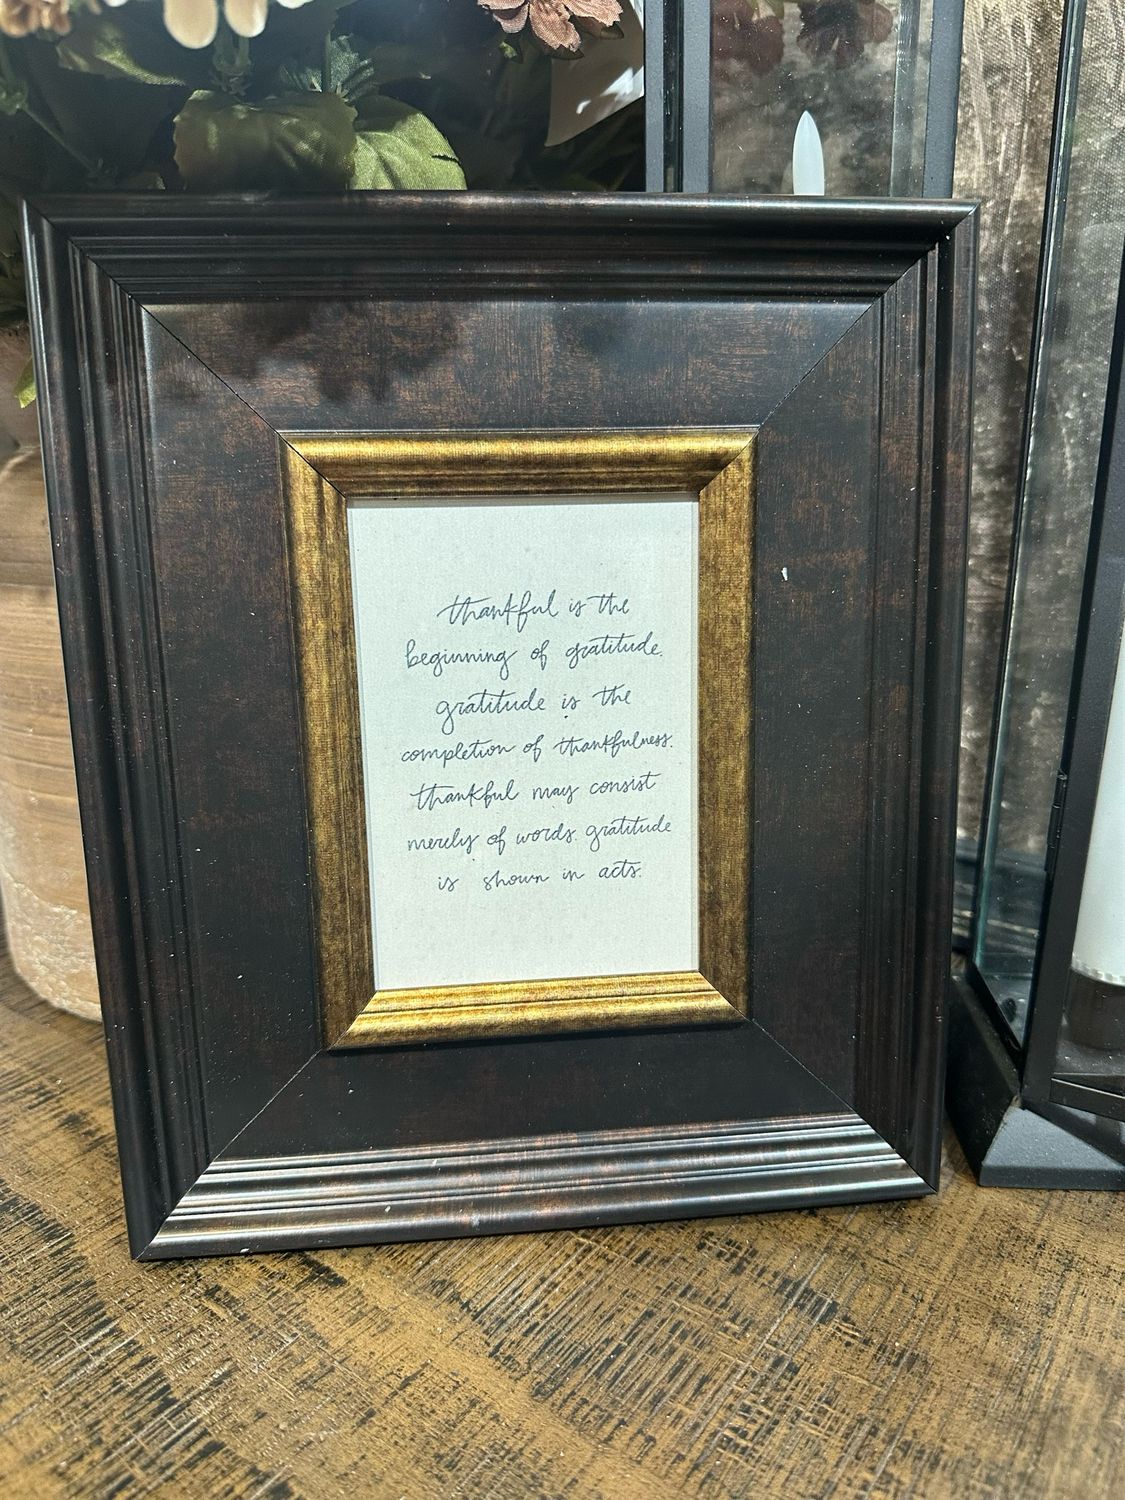 thankful is the
beginning of gratitude.
gratitude is the
completion of thankfulness.
thankful may consist
merely of words. gratitude
is shown in acts.